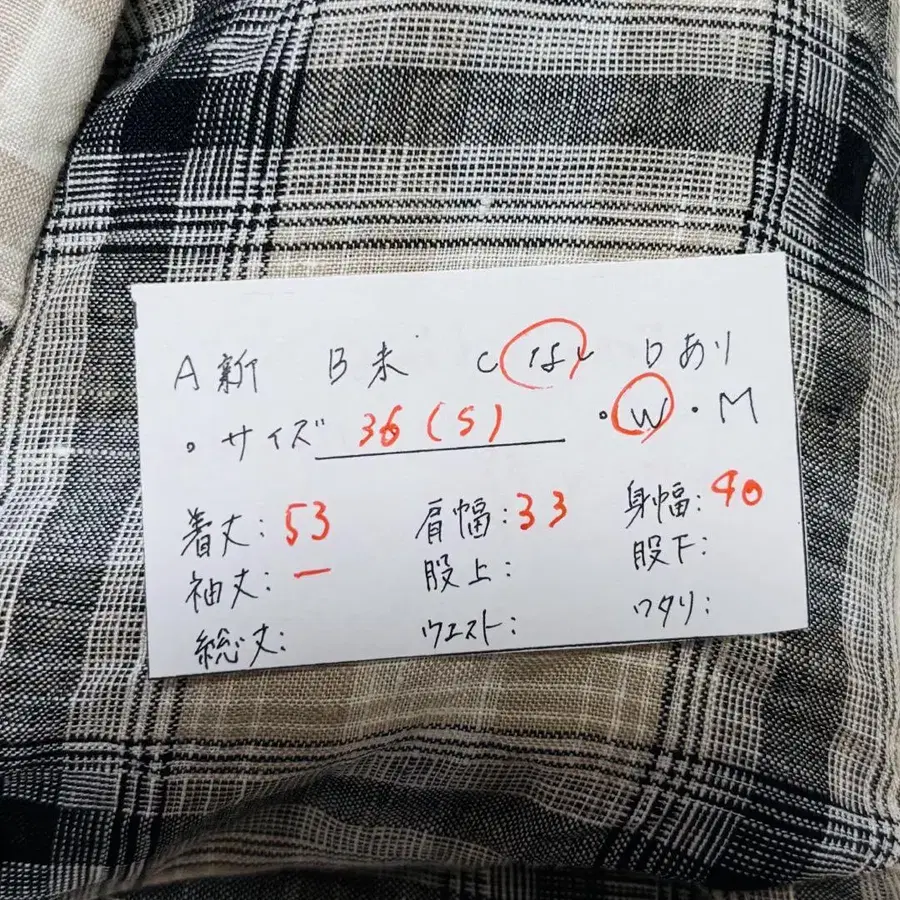 A新 B未 Cなし Dあり
。サイズ 36(S) ・W・M
着丈:53 肩幅:33 身幅:40
袖丈:ー 股上: 股下:
総丈: ウエスト: ワタリ: